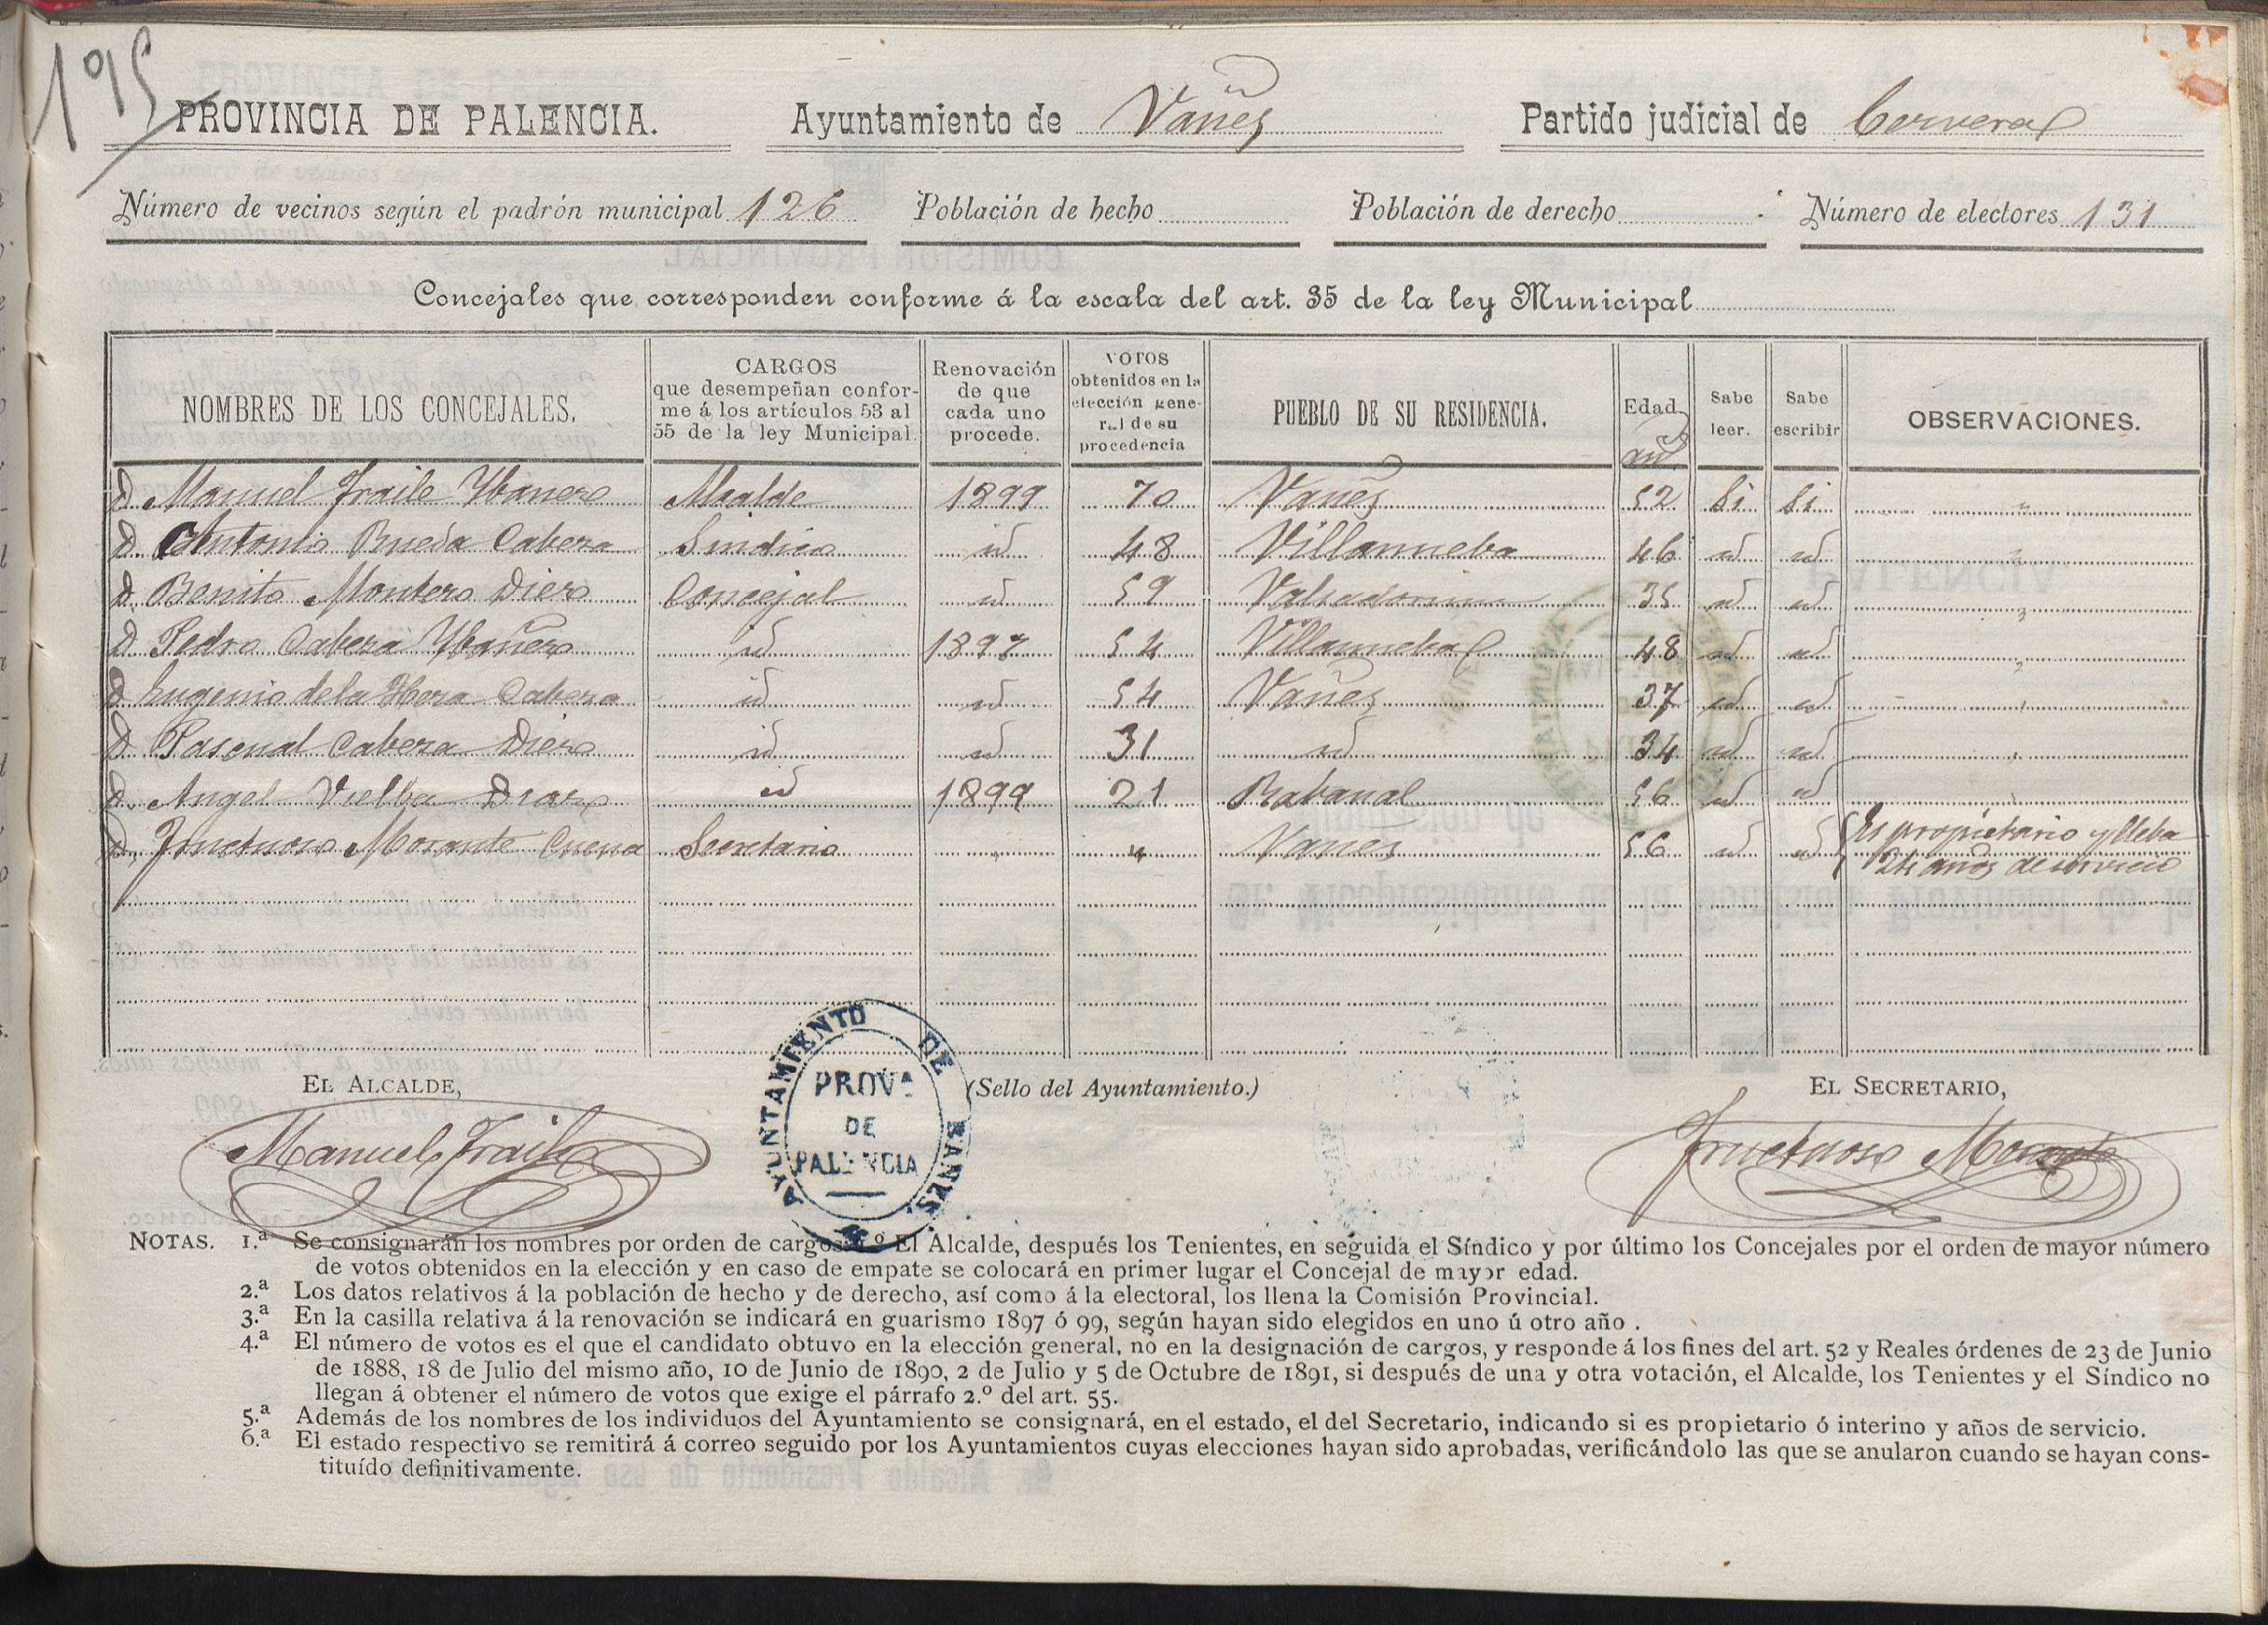 195
PROVINCIA DE PALENCIA. Ayuntamiento de Vañes Partido judicial de Cervera
Número de vecinos según el padrón municipal 126 Población de hecho Población de derecho Número de electores 131
Concejales que corresponden conforme á la escala del art. 35 de la ley Municipal
NOMBRES DE LOS CONCEJALES. CARGOS que desempeñan conforme á los artículos 53 al 55 de la ley Municipal. Renovación de que cada uno procede. VOTOS obtenidos en la elección general de su procedencia PUEBLO DE SU RESIDENCIA. Edad añ. Sabe leer. Sabe escribir OBSERVACIONES.
D. Manuel Fraile Ybañero Alcalde 1899 70 Vañes 52 Si Si "
D. Antonio Rueda Cabera Sindico id 48 Villanueba 46 id id "
D. Benito Montero Diero Concejal id 59 35 id id "
D. Pedro Cabera Ybañero id 1897 54 Villanueba 48 id id "
D. Eugenio de la Hera Cabera id id 54 Vañes 37 id id "
D. Pascual Cabera Diero id id 31 id 34 id id "
D. Angel Vielba Diaz id 1899 21 Rabanal 56 id id "
D. Fructuoso Morante Cuena Secretario " " Vañes 56 id id Es propietario y lleba
24 años de servicio
EL ALCALDE, (Sello del Ayuntamiento.) EL SECRETARIO,
AYUNTAMIENTO DE BAÑES
PROVª
DE
PALENCIA
Manuel Fraile Fructuoso Morante
NOTAS. 1.ª Se consignarán los nombres por orden de cargos: 1.º El Alcalde, después los Tenientes, en seguida el Síndico y por último los Concejales por el orden de mayor número
de votos obtenidos en la elección y en caso de empate se colocará en primer lugar el Concejal de mayor edad.
2.ª Los datos relativos á la población de hecho y de derecho, así como á la electoral, los llena la Comisión Provincial.
3.ª En la casilla relativa á la renovación se indicará en guarismo 1897 ó 99, según hayan sido elegidos en uno ú otro año .
4.ª El número de votos es el que el candidato obtuvo en la elección general, no en la designación de cargos, y responde á los fines del art. 52 y Reales órdenes de 23 de Junio
de 1888, 18 de Julio del mismo año, 10 de Junio de 1890, 2 de Julio y 5 de Octubre de 1891, si después de una y otra votación, el Alcalde, los Tenientes y el Síndico no
llegan á obtener el número de votos que exige el párrafo 2.º del art. 55.
5.ª Además de los nombres de los individuos del Ayuntamiento se consignará, en el estado, el del Secretario, indicando si es propietario ó interino y años de servicio.
6.ª El estado respectivo se remitirá á correo seguido por los Ayuntamientos cuyas elecciones hayan sido aprobadas, verificándolo las que se anularon cuando se hayan cons-
tituído definitivamente.